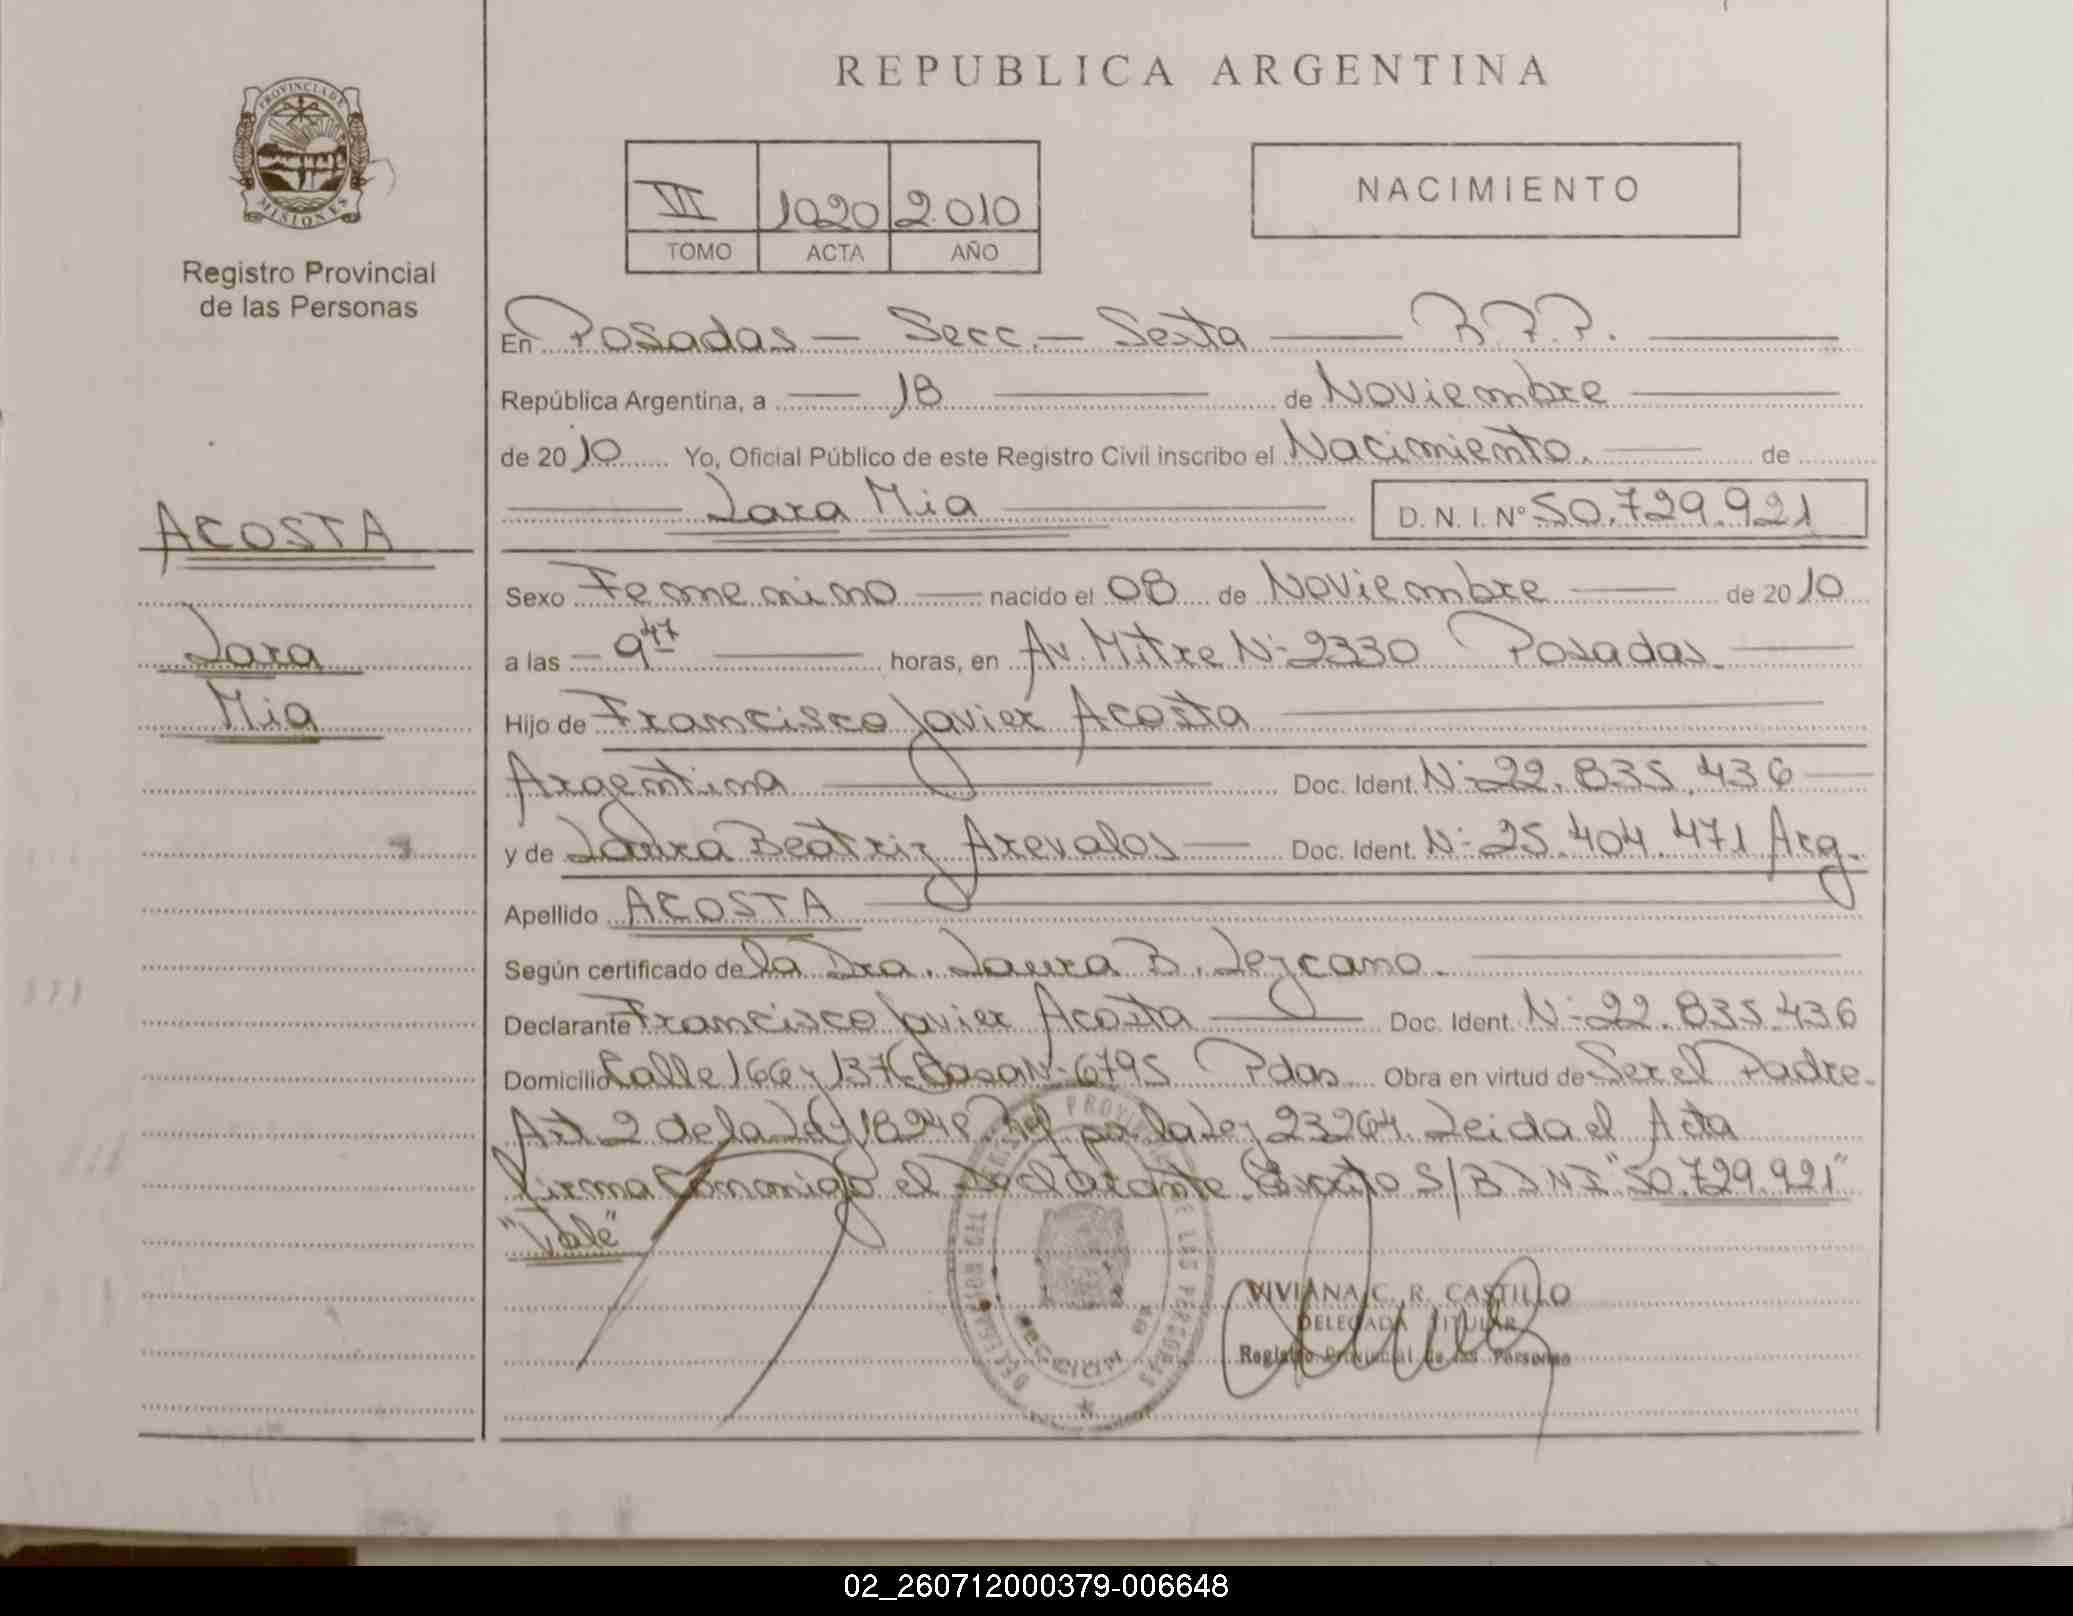 REPUBLICA ARGENTINA
PROVINCIA DE MISIONES
Registro Provincial
de las Personas
VI 1020 2.010
TOMO ACTA AÑO
NACIMIENTO
En Posadas — Secc. — Sexta — R.P.P. —
República Argentina, a — 18 — de Noviembre —
de 2010 Yo, Oficial Público de este Registro Civil inscribo el Nacimiento. — de
— Lara Mia — D. N. I. Nº 50.729.921
ACOSTA
Lara
Mia
Sexo Femenino — nacido el 08 de Noviembre — de 2010
a las — 9 47 — horas, en Av. Mitre Nº 2330 Posadas. —
Hijo de Francisco Javier Acosta —
Argentina — Doc. Ident. Nº 22.835.436 —
y de Laura Beatriz Arevalos — Doc. Ident. Nº 25.404.471 Arg.
Apellido ACOSTA —
Según certificado de la Dra. Laura B. Lezcano. —
Declarante Francisco Javier Acosta — Doc. Ident. Nº 22.835.436
Domicilio Calle 166 y 137 Casa Nº 6795 Pdas. Obra en virtud de Ser el Padre.
Art 2 de la Ley 18248 Ref por la Ley 23264. Leida el Acta
firma Conmigo el Declarante. S/B D N I "50.729.921"
"Vale"
VIVIANA C. R. CASTILLO
DELEGADA TITULAR
Registro Provincial de las Personas
02_260712000379-006648